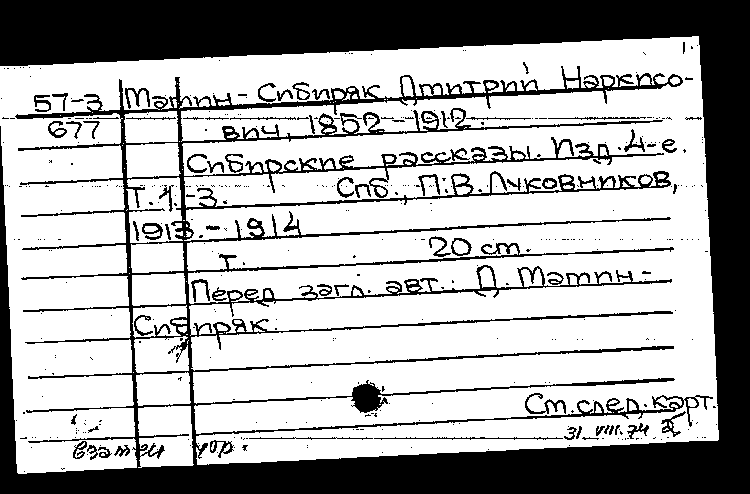 1.
57-3 Мамин-Сибиряк, Дмитрий Наркисо-
677 вич, 1852-1912.
Сибирские рассказы. Изд. 4-е.
Т.1.-3. Спб., П.В.Луковников,
1913.-1914
т. 20 cm.
Перед загл. авт.: Д. Мамин-
Сибиряк.
См.след.карт.
31.VIII.74
взамен